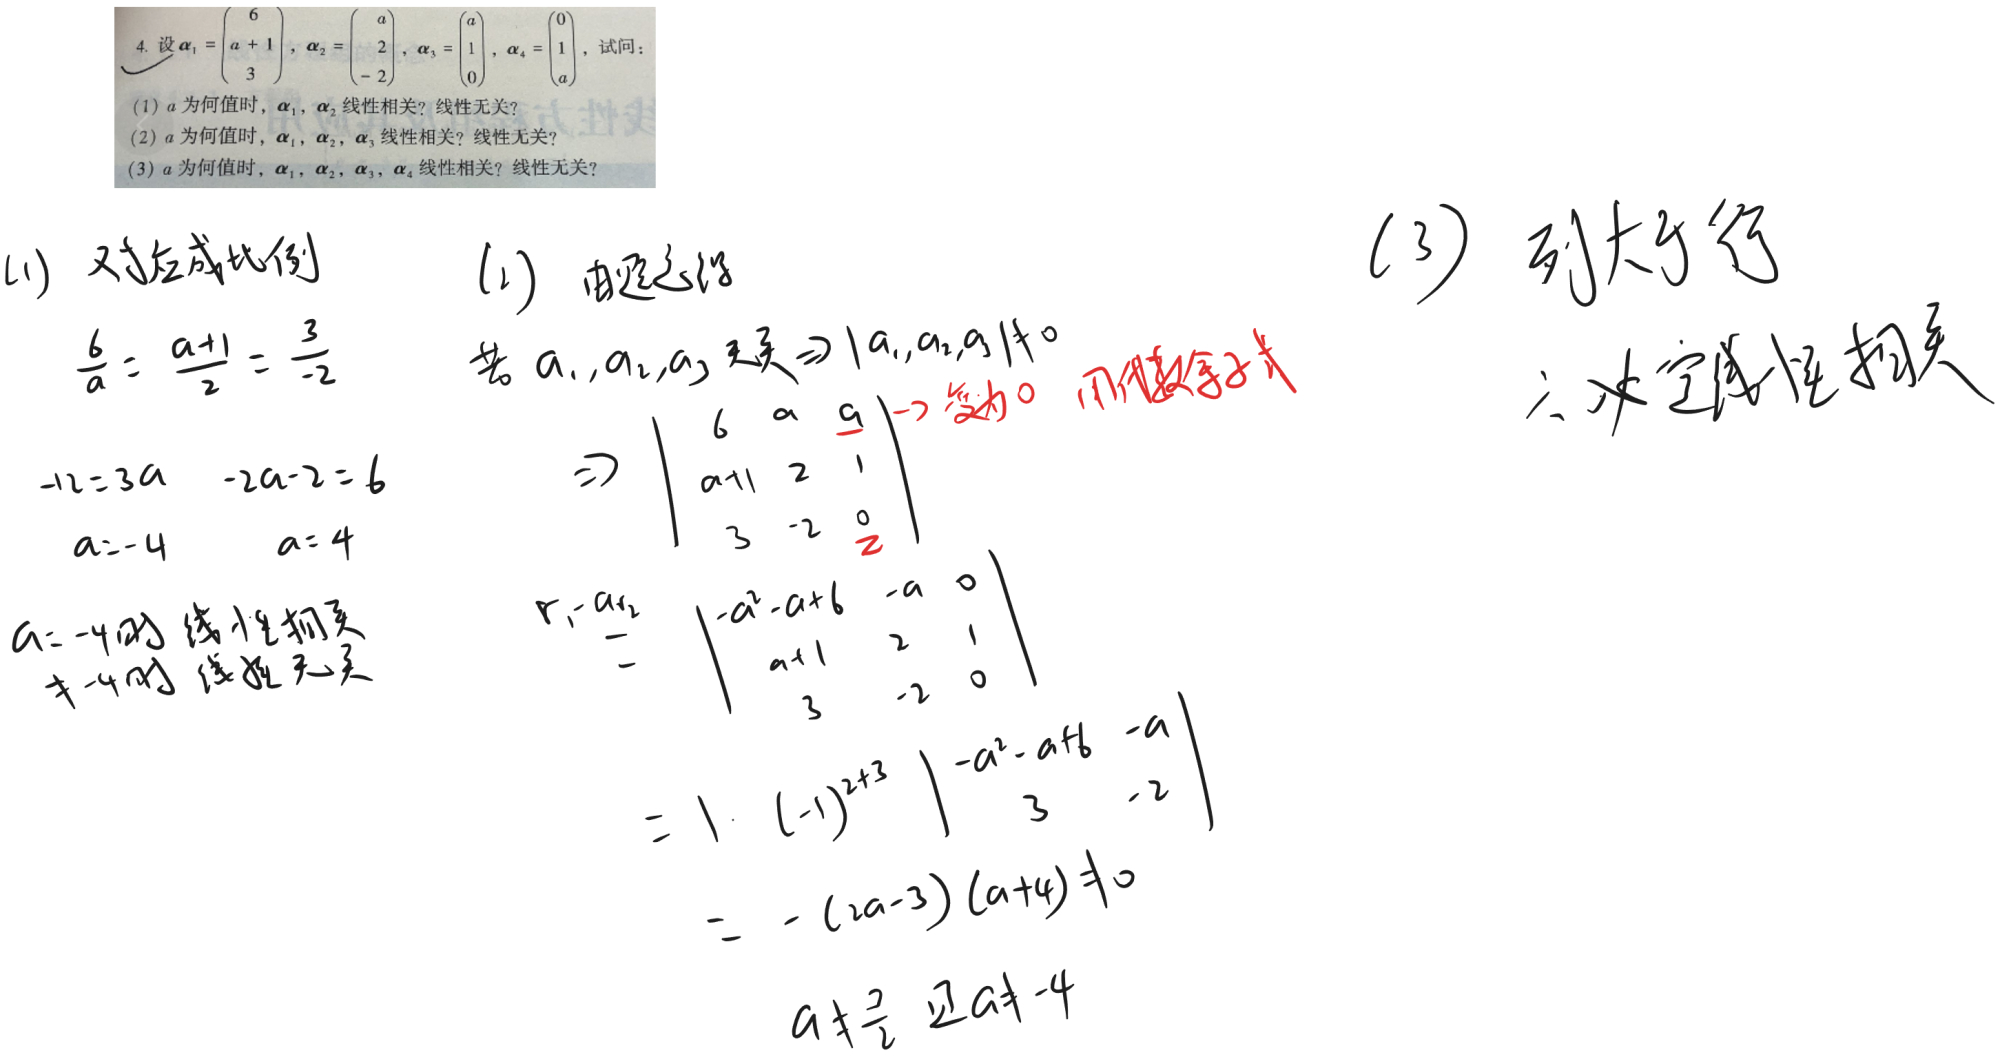 4. 设 α₁ = (6, a + 1, 3), α₂ = (a, 2, −2), α₃ = (a, 1, 0), α₄ = (0, 1, a), 试问:
(1) a 为何值时, α₁, α₂ 线性相关? 线性无关?
(2) a 为何值时, α₁, α₂, α₃ 线性相关? 线性无关?
(3) a 为何值时, α₁, α₂, α₃, α₄ 线性相关? 线性无关?
(1) 对应成比例
6/a = (a+1)/2 = 3/-2
-12=3a -2a-2=6
a=-4 a=4
a=-4时 线性相关
≠-4时 线性无关
(2) 由题意得
若 a₁,a₂,a₃ 无关 => |a₁,a₂,a₃|≠0
=> | 6 a a | -> 变为0 用代数余子式
| a+1 2 1 |
| 3 -2 0 |
r₁-ar₂ = | -a²-a+6 -a 0 |
| a+1 2 1 |
| 3 -2 0 |
= 1·(-1)²⁺³ | -a²-a+6 -a |
| 3 -2 |
= -(2a-3)(a+4)≠0
a≠3/2 且a≠-4
(3) 列大于行
∴ 必定线性相关